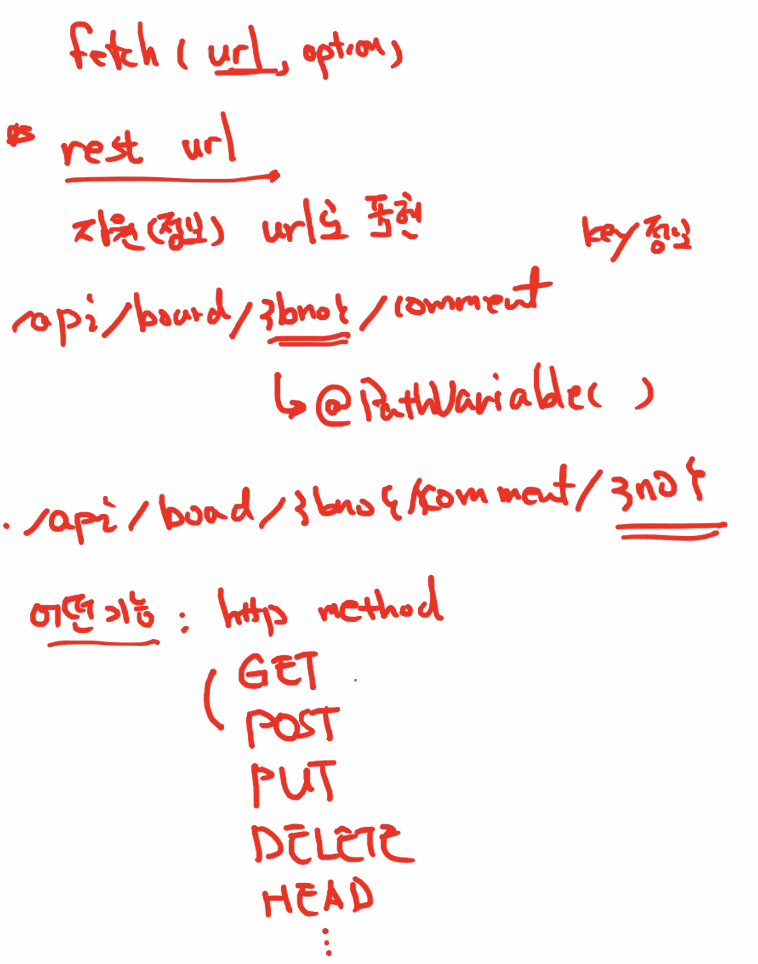 fetch ( url, option)
rest url
자원(정보) url로 표현 key/중요
/api/board/}bno{/comment
↳ @PathVariable( )
/api/boad/}bno{/comment/}no{
어떤기능 : http method
GET
POST
PUT
DELETE
HEAD
⋮